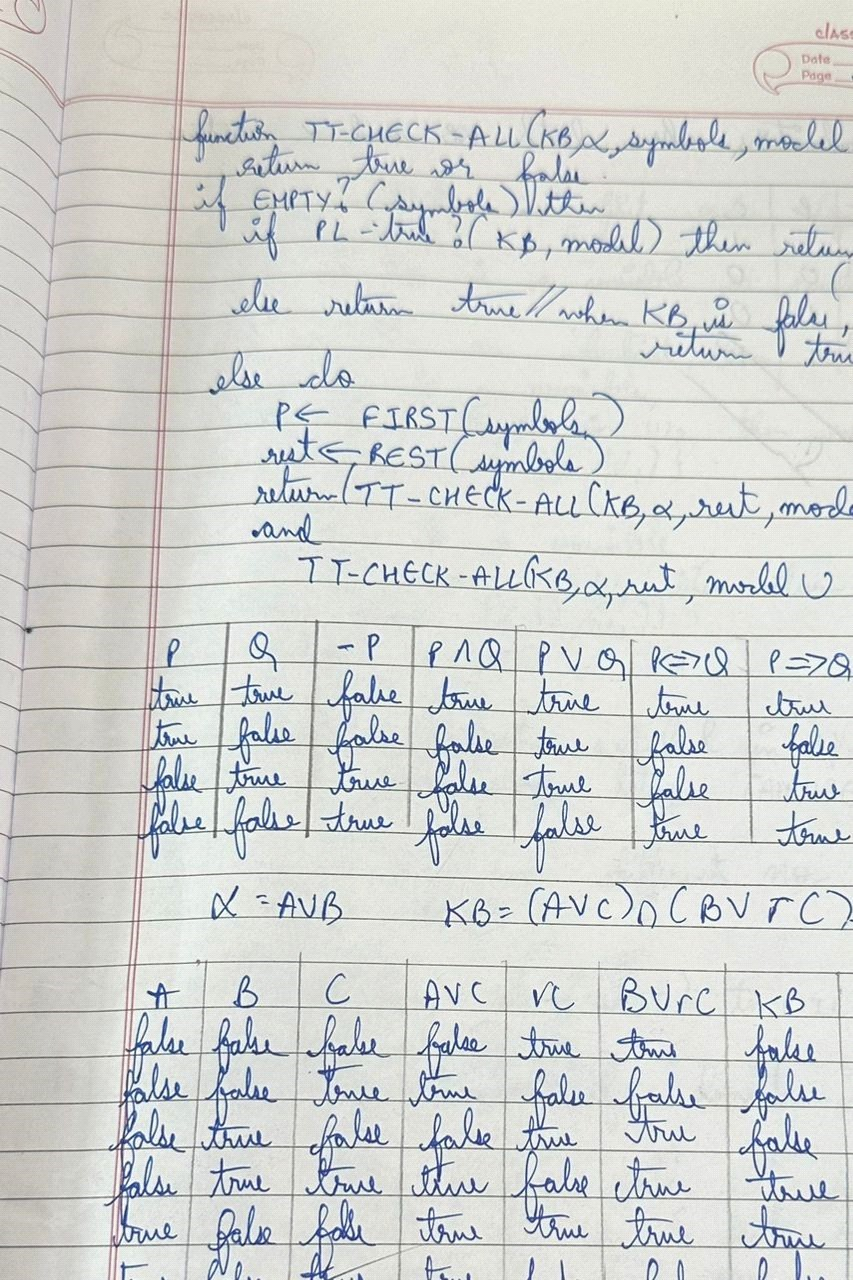 CLASS
Date
Page
function TT-CHECK-ALL(KB,α,symbols, model
return true or false
if EMPTY?(symbols) then
if PL-true?(KB, model) then return
(
else return true//when KB is false,
return tru
else do
P← FIRST(symbols)
rest← REST(symbols)
return(TT-CHECK-ALL(KB,α,rest, mode
and
TT-CHECK-ALL(KB,α,rest, model ∪
P Q -P P∧Q P∨Q P<=>Q P=>Q
true true false true true true true
true false false false true false false
false true true false true false true
false false true false false true true
α = A∨B KB = (A∨C)∩(B∨┌C)
A B C A∨C ┌C B∨┌C KB
false false false false true true false
false false true true false false false
false true false false true true false
false true true true false true true
true false false true true true true